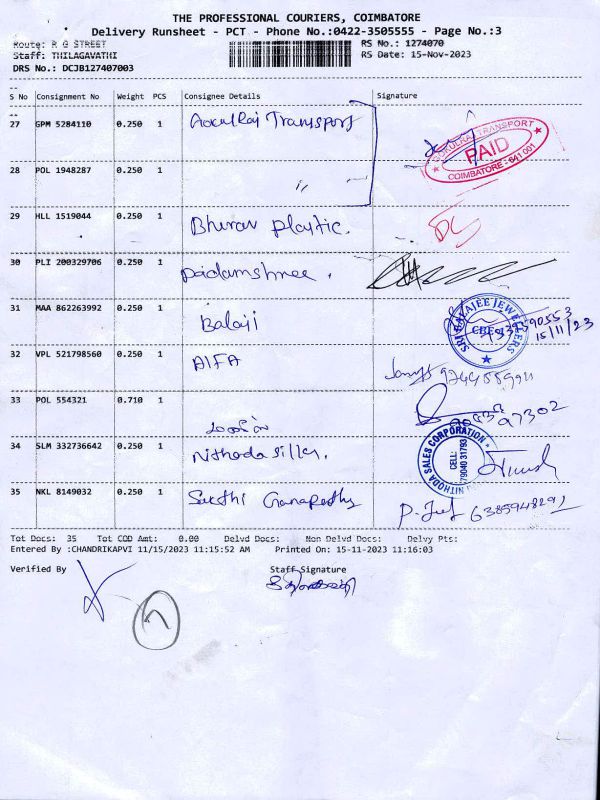 THE PROFESSIONAL COURIERS, COIMBATORE
Delivery Runsheet - PCT - Phone No.:0422-3505555 - Page No.:3
Route: R G STREET
RS No.: 1274070
Staff: THILAGAVATHI
RS Date: 15-Nov-2023
DRS No.: DCJB127407003
S No Consignment No Weight PCS Consignee Details Signature
27 GPM 5284110 0.250 1 Gokulraj Transport
GOKULRAJ TRANSPORT
PAID
COIMBATORE - 641 001
28 POL 1948287 0.250 1 "
29 HLL 1519044 0.250 1 Bhirav plastic.
30 PLI 200329706 0.250 1 padamshree.
31 MAA 862263992 0.250 1 Balaji
SRI BALAJEE JEWELLERS
CBE-1
15/11/23
32 VPL 521798560 0.250 1 AIFA
33 POL 554321 0.710 1
97302
34 SLM 332736642 0.250 1 Nithoda siller.
NITHODA SALES CORPORATION
CELL:
79040 31793
35 NKL 8149032 0.250 1 Sakthi Ganapathy
6385948291
Tot Docs: 35 Tot COD Amt: 0.00 Delvd Docs: Non Delvd Docs: Delvy Pts:
Entered By :CHANDRIKAPVI 11/15/2023 11:15:52 AM Printed On: 15-11-2023 11:16:03
Verified By Staff Signature